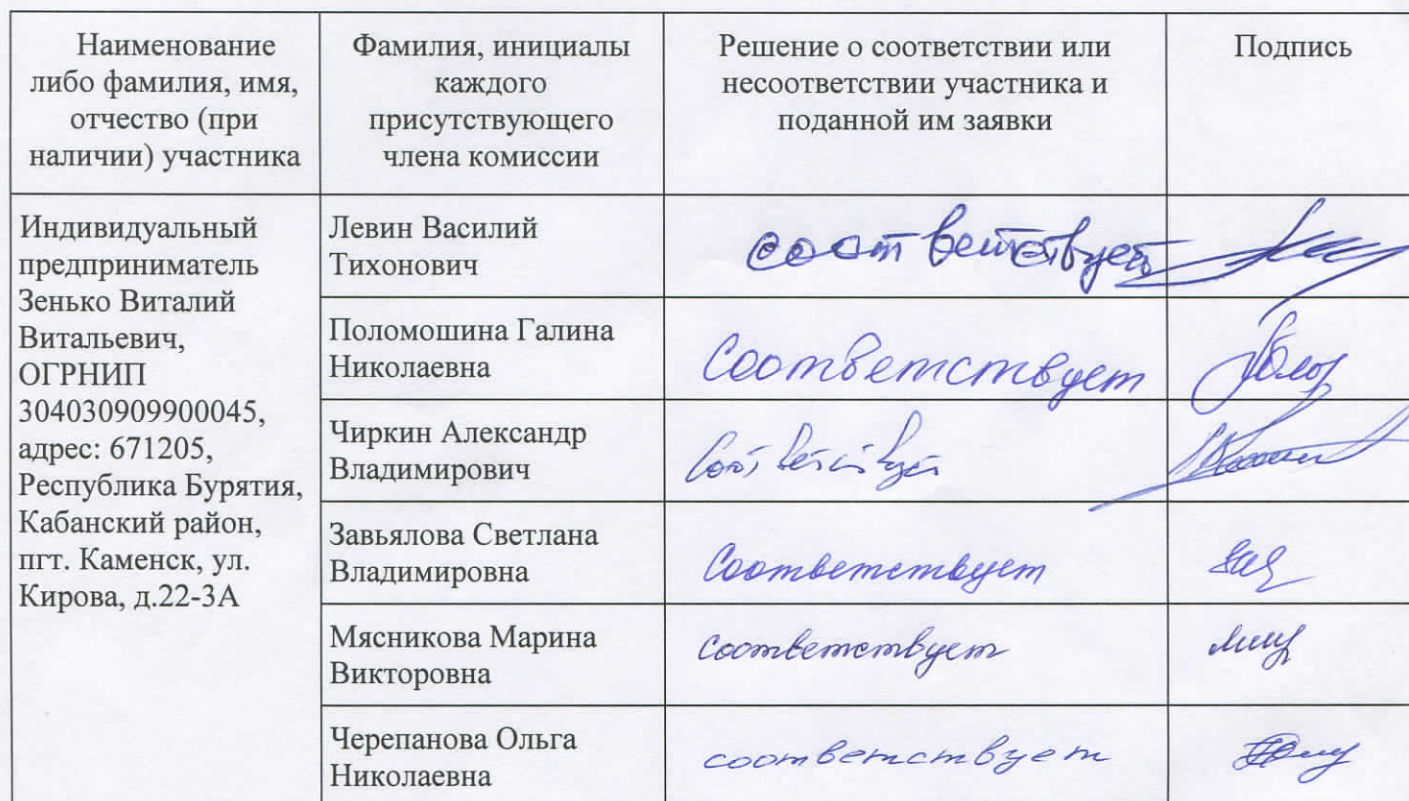 Наименование
либо фамилия, имя,
отчество (при
наличии) участника
Фамилия, инициалы
каждого
присутствующего
члена комиссии
Решение о соответствии или
несоответствии участника и
поданной им заявки
Подпись
Индивидуальный
предприниматель
Зенько Виталий
Витальевич,
ОГРНИП
304030909900045,
адрес: 671205,
Республика Бурятия,
Кабанский район,
пгт. Каменск, ул.
Кирова, д.22-3А
Левин Василий
Тихонович
соответствует
Поломошина Галина
Николаевна
Соответствует
Чиркин Александр
Владимирович
Соответствует
Завьялова Светлана
Владимировна
Соответствует
Мясникова Марина
Викторовна
соответствует
Черепанова Ольга
Николаевна
соответствует